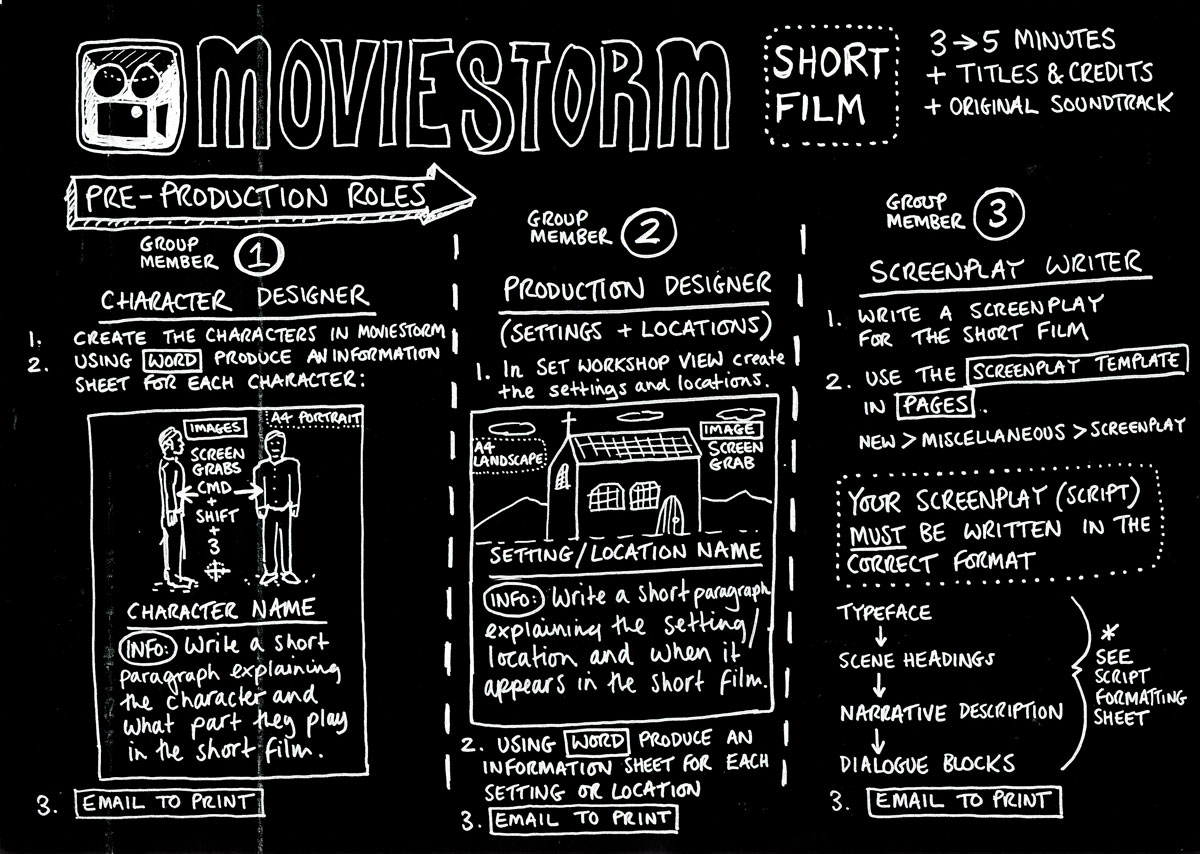 MOVIESTORM
SHORT
FILM
3→5 MINUTES
+ TITLES & CREDITS
+ ORIGINAL SOUNDTRACK
PRE-PRODUCTION ROLES
GROUP
MEMBER 1
CHARACTER DESIGNER
1. CREATE THE CHARACTERS IN MOVIESTORM
2. USING WORD PRODUCE AN INFORMATION
SHEET FOR EACH CHARACTER:
A4 PORTRAIT
IMAGES
SCREEN
GRABS
CMD
+
SHIFT
+
3
CHARACTER NAME
INFO: Write a short
paragraph explaining
the character and
what part they play
in the short film.
3. EMAIL TO PRINT
GROUP
MEMBER 2
PRODUCTION DESIGNER
(SETTINGS + LOCATIONS)
1. In SET WORKSHOP VIEW create
the settings and locations.
A4
LANDSCAPE
IMAGE
SCREEN
GRAB
SETTING/LOCATION NAME
INFO: Write a short paragraph
explaining the setting/
location and when it
appears in the short film.
2. USING WORD PRODUCE AN
INFORMATION SHEET FOR EACH
SETTING OR LOCATION
3. EMAIL TO PRINT
GROUP
MEMBER 3
SCREENPLAY WRITER
1. WRITE A SCREENPLAY
FOR THE SHORT FILM
2. USE THE SCREENPLAY TEMPLATE
IN PAGES.
NEW > MISCELLANEOUS > SCREENPLAY
YOUR SCREENPLAY (SCRIPT)
MUST BE WRITTEN IN THE
CORRECT FORMAT
TYPEFACE
↓
SCENE HEADINGS
↓
NARRATIVE DESCRIPTION
↓
DIALOGUE BLOCKS
*
SEE
SCRIPT
FORMATTING
SHEET
3. EMAIL TO PRINT